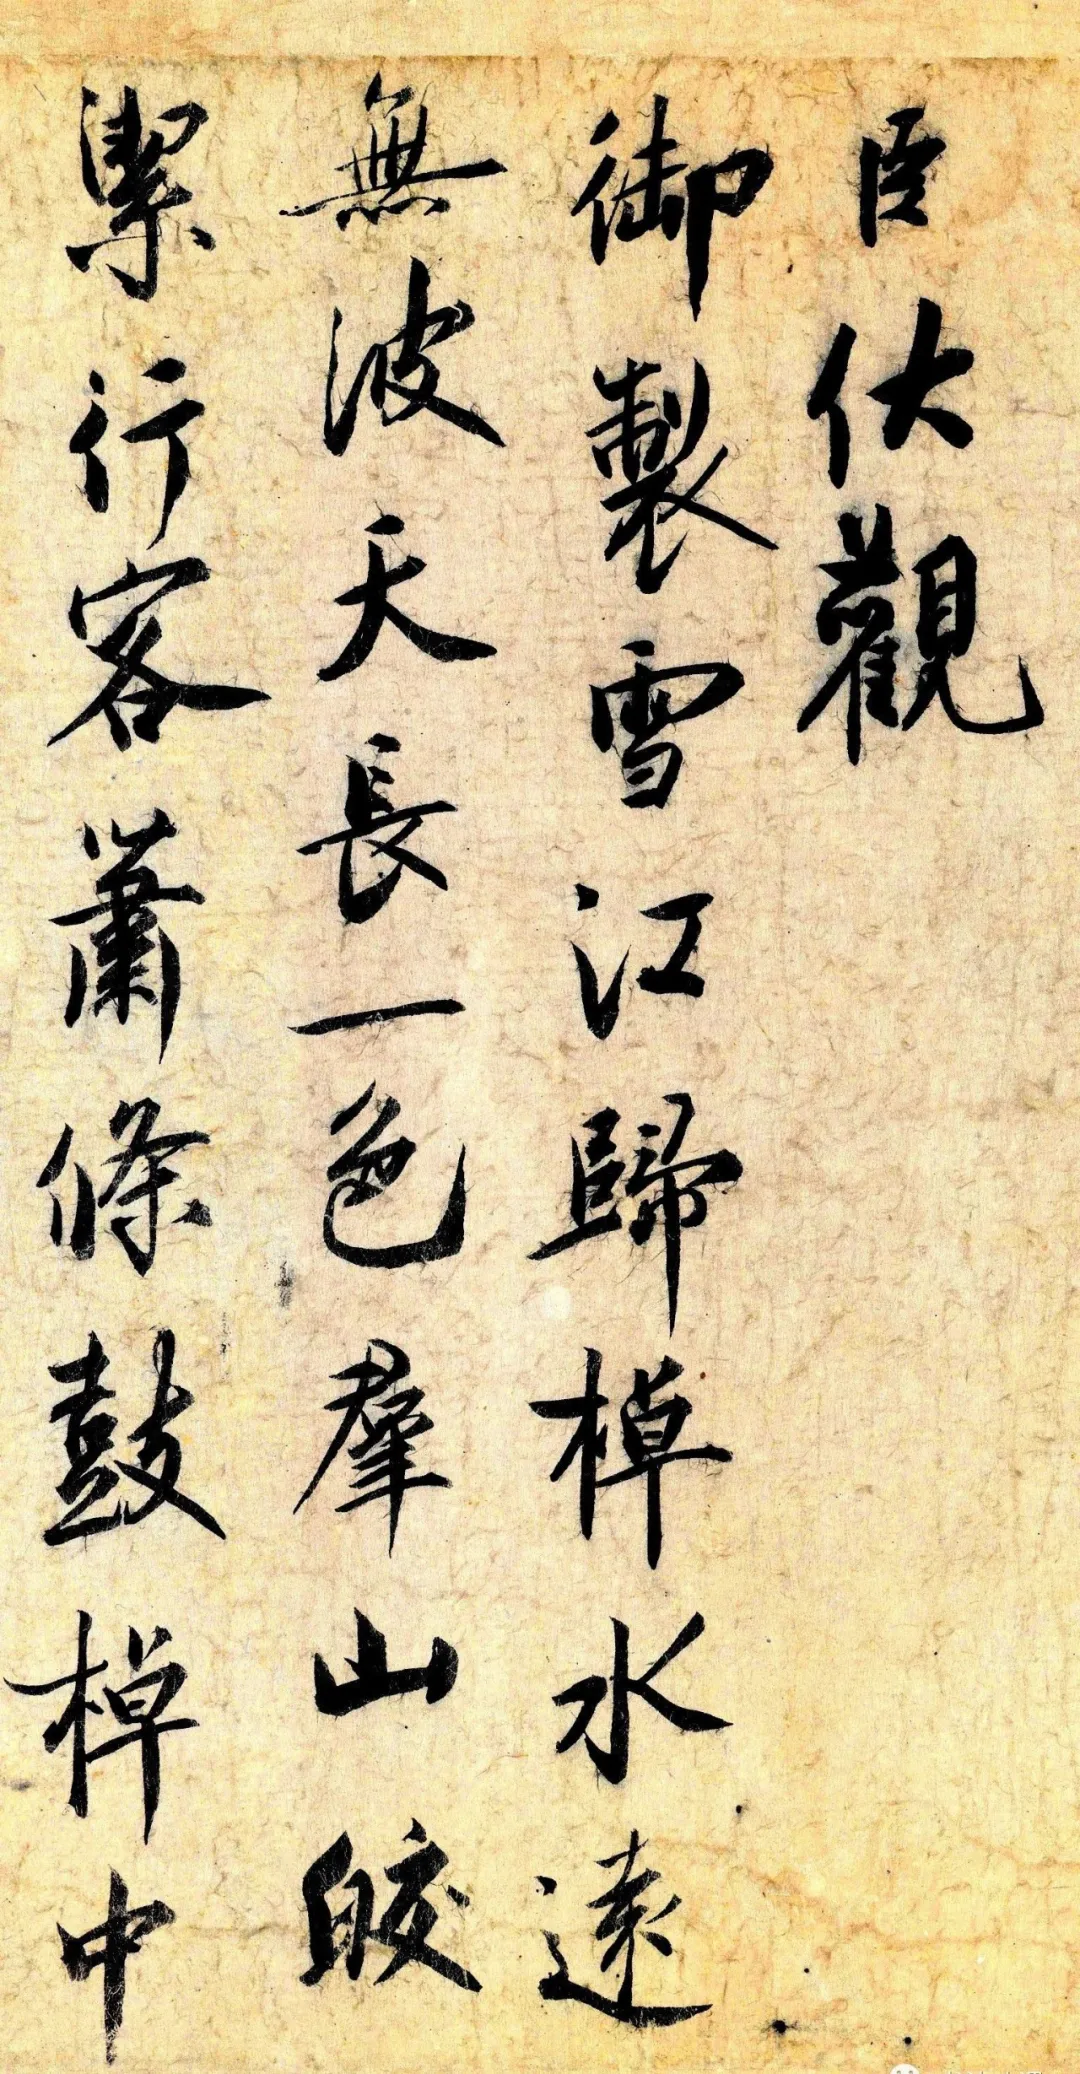 臣伏觀
御製雪江歸棹水遠
無波天長一色群山皎
潔行客蕭條鼓棹中